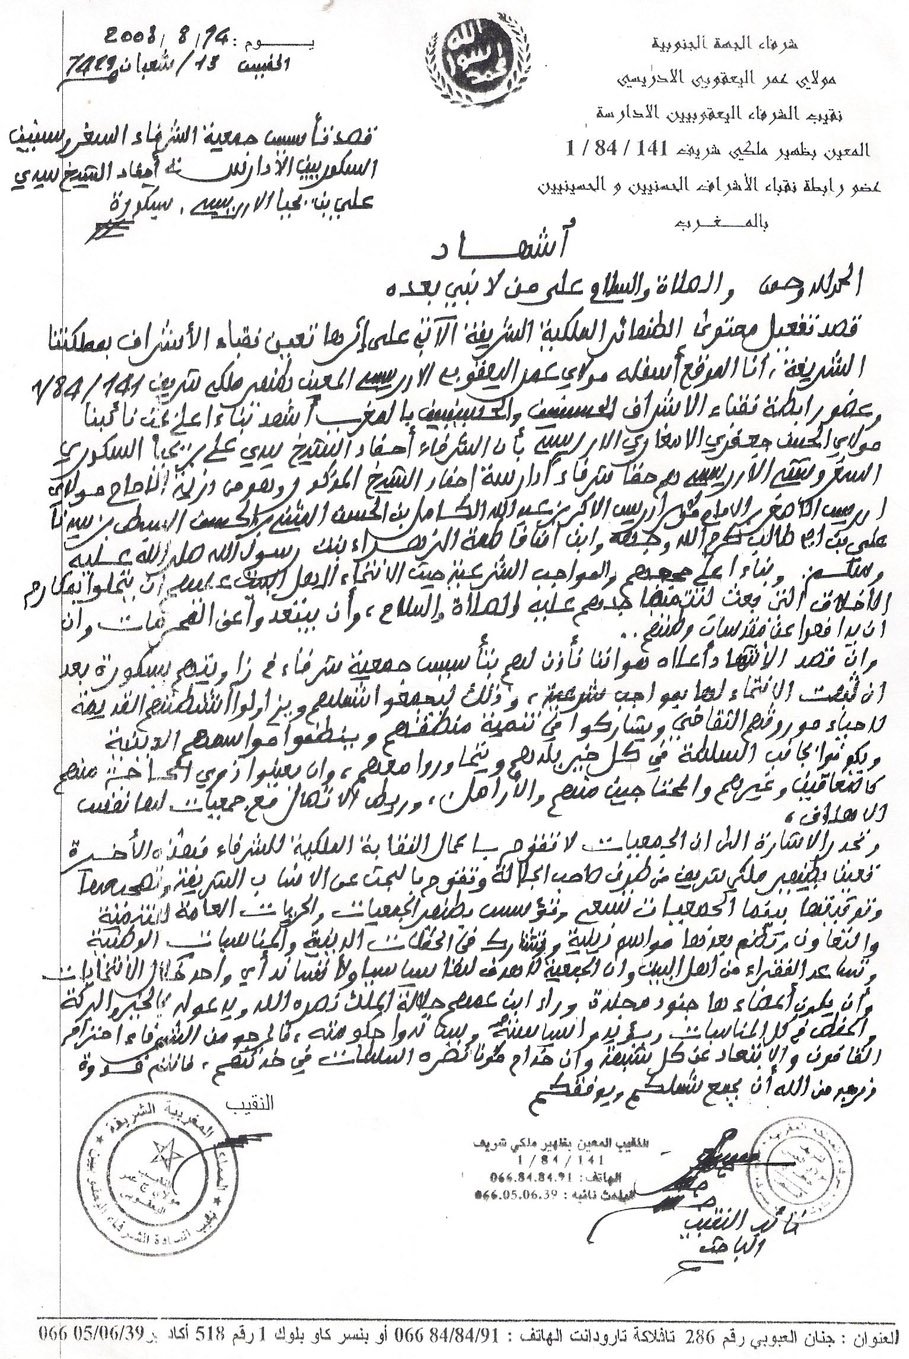 شرفاء الجهة الجنوبية
مولاي عمر اليعقوبي الادريسي
نقيب الشرفاء اليعقوبيين الادارسة
المعين بظهير ملكي شريف 141 / 84 / 1
عضو رابطة نقباء الأشراف الحسنيين و الحسينيين
بالمـغـــرب
يـــوم : 14 / 8 / 2008
الخميس 13 / شعبان 1429
قصد تأسيس جمعية الشرفاء السغروسنيين
السكوريين الأدارسة أحفاد الشيخ سيدي
علي بن يحيا الادريسي . سكورة
أشهـــاد
الحمد لله وحده والصلاة والسلام على من لا نبي بعده
قصد تفعيل محتوى الظهائر الملكية الشريفة الآتية على إثرها تعين نقباء الأشراف بمملكتنا
الشريفة ، أنا الموقع أسفله مولاي عمر اليعقوبي الادريسي المعين بظهير ملكي شريف 141 / 84 / 1
وعضو رابطة نقباء الاشراف الحسنيين والحسينيين بالمغرب أشهد بناء اعلى بحث نائبنا
مولاي الحسن جعفري الامغاري الادريسي بأن الشرفاء أحفاد الشيخ سيدي علي بن يحيا السكوري
السغروسني الادريسي هم حقا شرفاء أدارسة أحفاد الشيخ المذكور وهو من ذرية الحاج مولاي
ادريس الأصغر بن الامام مولاي ادريس الاكبر بن عبد الله الكامل بن الحسن المثنى بن الحسن السبط بن سيدنا
علي بن ابي طالب كرم الله وجهه وابن أمنا فاطمة الزهراء بنت رسول الله صلى الله عليه
وسلم . وبناء اعلى والمواجب الشرعية حيث الانتماء لاهل البيت عليهم أن يتحلوا بمكارم
الأخلاق التي بعث لتتميمها جدهم عليه الصلاة والسلام ، وأن يبتعدوا عن المحرمات وان
ان يدافعوا عن مقدسات وطنهم ..
وان قصد الاشهاد أعلاه هو اننا نأذن لهم بتأسيس جمعية شرفاء في زاويتهم بسكورة بعد
ان ثبت الانتماء لها بمواجب شرعية ، وذلك ليجمعوا شملهم ويزاولوا أنشطتهم القديمة
لاحياء موروثهم الثقافي ويشاركوا في تنمية منطقتهم وينظموا مواسمهم الدينية
ويكونوا بجانب السلطة في كل خير بلدهم ويتحاوروا معهم ، وان يعينوا ذوي الحاجة منهم
كالمعاقين وغيرهم والمحتاجين منهم والأرامل ، وربط الاتصال مع جمعيات لها نفس
الاهداف ،
وتجدر الاشارة الى ان الجمعيات لا تقوم باعمال النقابة الملكية للشرفاء فهذه الأخيرة
تعين بظهير ملكي شريف من طرف صاحب الجلالة وتقوم بالبحث عن الانساب الشريفة
بينما الجمعيات تؤسس بظهير الجمعيات والحريات العامة
والتعاون وتشارك في الحفلات الدينية والمناسبات الوطنية
وتساعد الفقراء من أهل البيت وان الجمعية لا هدف لها سياسيا ولا تساند أي واحد خلال الانتخابات
وأن يكون أعضاءها جنود مجندة وراء ابن عمهم جلالة الملك نصره الله ويدعو له بالخير والبركة
والحفظ في كل المناسبات ويؤيدوا سياسته ويساندوا حكومته ، فالمرجو من الشرفاء احترام
القانون والابتعاد عن كل شبهة وان خدام مولانا نصره السلطات في خدمتهم ، فانتم قدوة
نرجو من الله أن يجمع شملكم ويوفقكم
النقيب
النقيب المعين بظهير ملكي شريف
141 / 84 / 1
الهاتف : 066.84.84.91
الباحث نائبه : 066.05.06.39
نائب النقيب
الباحث
العنوان : جنان العبوبي رقم 286 تاثلاكة تارودانت الهاتف : 066 84/84/91 أو بنسر كاو بلوك 1 رقم 518 أكادير 066 05/06/39